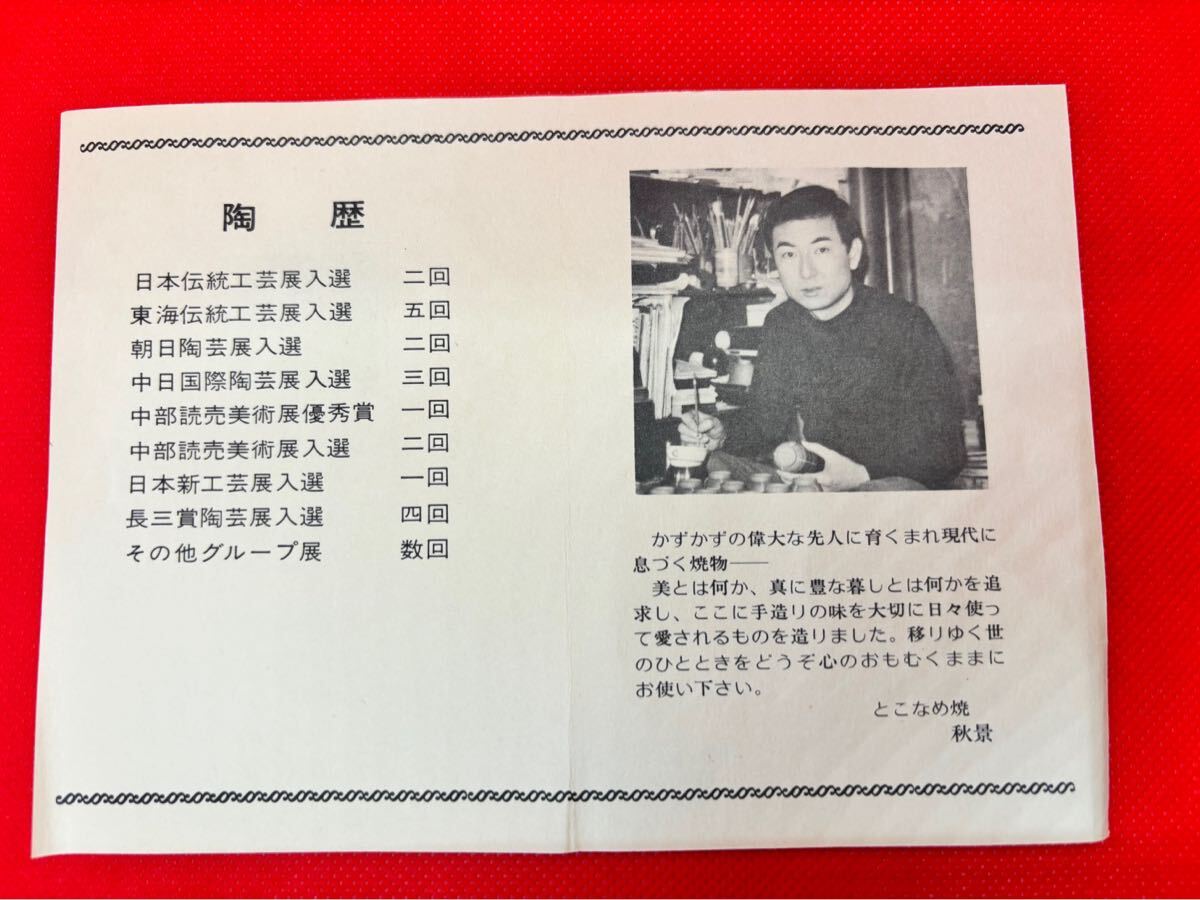 陶 歴
日本伝統工芸展入選 二回
東海伝統工芸展入選 五回
朝日陶芸展入選 二回
中日国際陶芸展入選 三回
中部読売美術展優秀賞 一回
中部読売美術展入選 二回
日本新工芸展入選 一回
長三賞陶芸展入選 四回
その他グループ展 数回
かずかずの偉大な先人に育くまれ現代に
息づく焼物——
美とは何か、真に豊な暮しとは何かを追
求し、ここに手造りの味を大切に日々使っ
て愛されるものを造りました。移りゆく世
のひとときをどうぞ心のおもむくままに
お使い下さい。
とこなめ焼
秋景